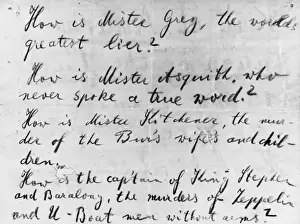 How is Mister Grey, the world
greatest lier?
How is Mister Asquith, who
never spoke a true word?
How is Mister Kitchener, the mur-
der of the Bur's wife's and chil-
dren
How is the captain of King Stephen
and Baralong, the murders of Zeppelin
and U-Boat men without arms?